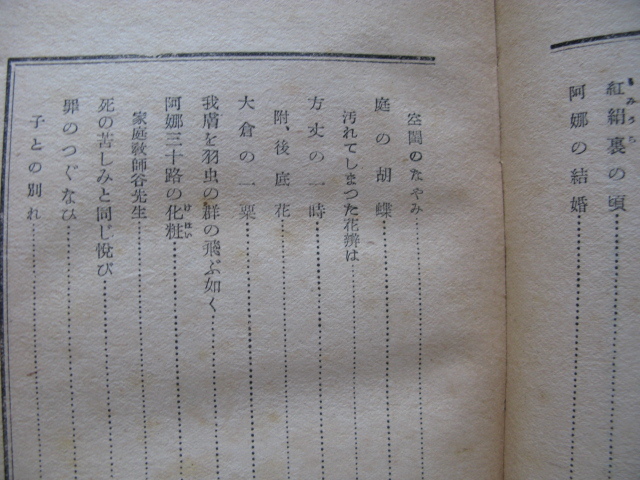 紅絹裏の頃
阿娜の結婚
空閨のなやみ
庭の胡蝶
汚れてしまつた花瓣は
方丈の一時
附、後底花
大倉の一粟
我膚を羽虫の群の飛ぶ如く
阿娜三十路の化粧
家庭敎師谷先生
死の苦しみと同じ悦び
罪のつぐなひ
子との別れ